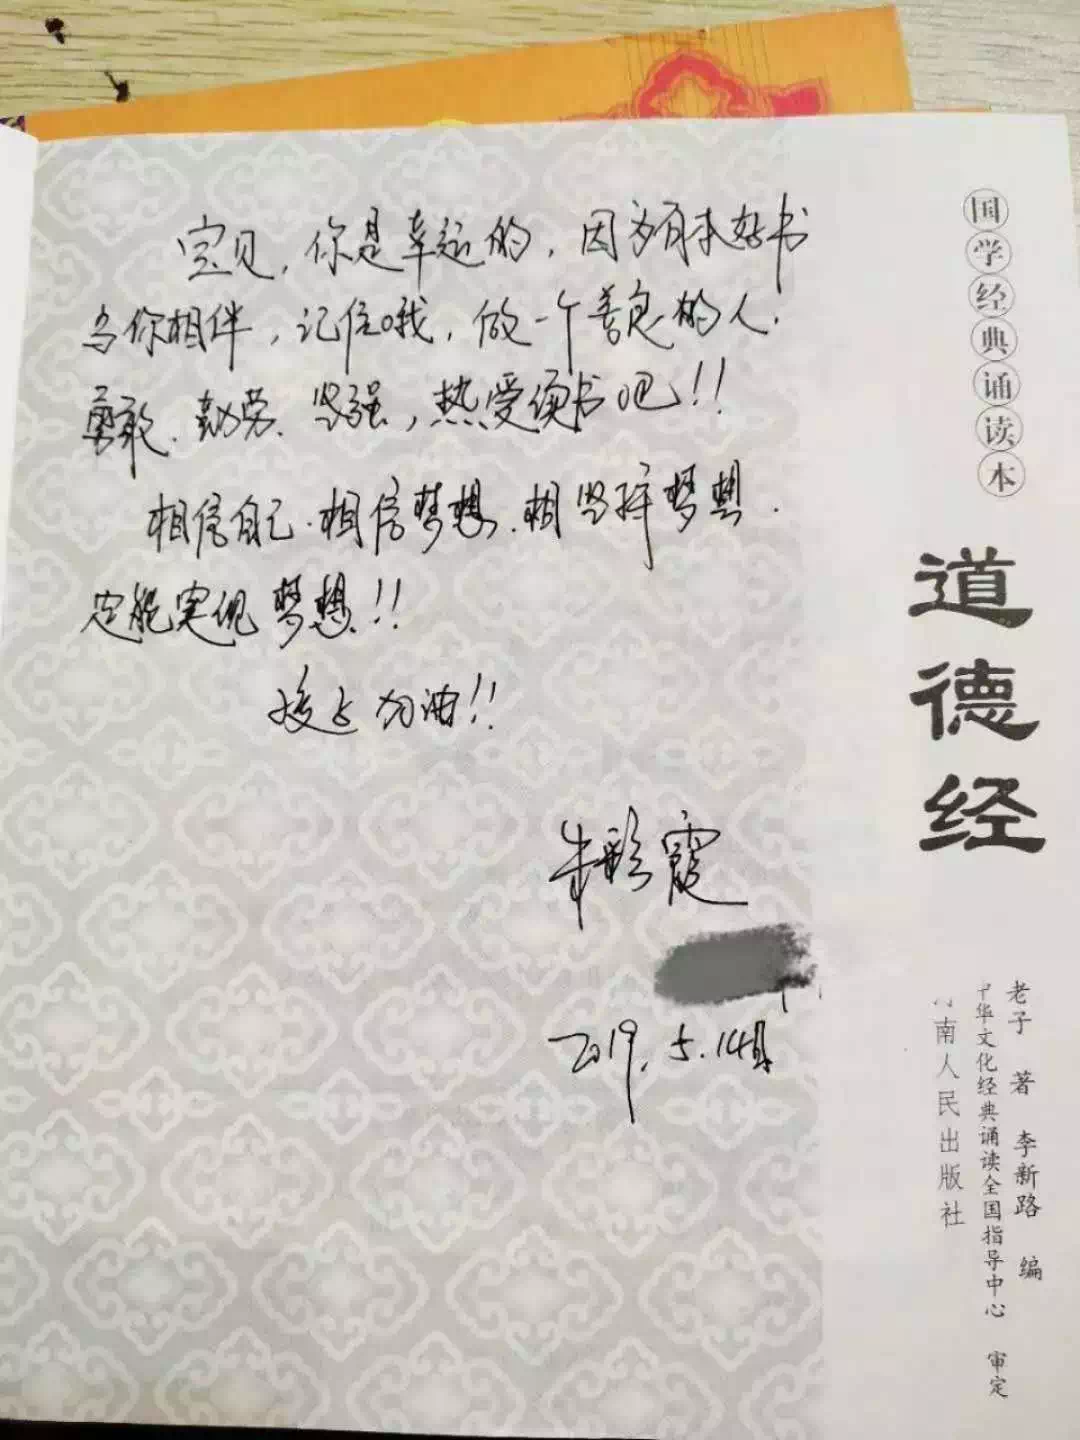 宝贝,你是幸运的,因为有本好书
与你相伴,记住哦,做一个善良的人.
勇敢、勤劳、坚强,热爱读书吧!!
相信自己.相信梦想.相坚持梦想.
定能实现梦想!!
加油!!
朱彩霞
2019.5.14日
国学经典诵读本
道德经
老子 著 李新路 编
中华文化经典诵读全国指导中心 审定
南人民出版社